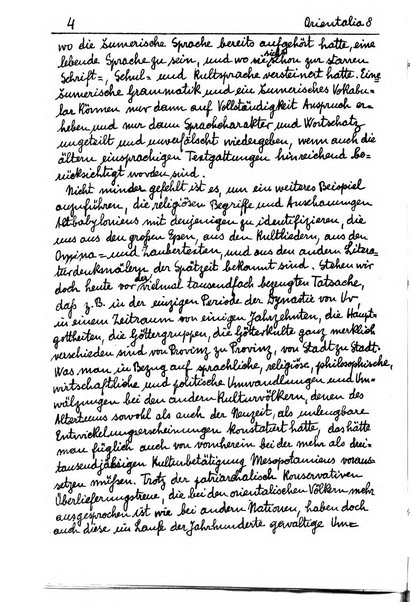 4 Orientalia 8
wo die Sumerische Sprache bereits aufgehört hatte, eine
lebende Sprache zu sein, und wo sie sich schon zur starren
Schrift=, Schul= und Kultsprache versteinert hatte. Eine
Sumerische Grammatik und ein Sumerisches Vokabu=
lar können nur dann auf Vollständigkeit Anspruch er=
heben und nur dann Sprachcharakter und Wortschatz
ungeteilt und unverfälscht wiedergeben, wenn auch die
ältern einsprachigen Textgattungen hinreichend be=
rücksichtigt worden sind.
Nicht minder gefehlt ist es, um ein weiteres Beispiel
anzuführen, die religiösen Begriffe und Anschauungen
Altbabyloniens mit denjenigen zu identifizieren, die
uns aus den großen Epen, aus den Kultliedern, aus den
Omina= und Zaubertexten, und aus den andern Litera=
turdenkmälern der Spätzeit bekannt sind. Stehen wir
doch heute vor der vielmal tausendfach bezeugten Tatsache,
daß z. B. in der einzigen Periode der Dynastie von Ur,
in einem Zeitraum von einigen Jahrzehnten, die Haupt=
gottheiten, die Göttergruppen, die Götterkulte ganz merklich
verschieden sind von Provinz zu Provinz, von Stadt zu Stadt.
Was man in Bezug auf sprachliche, religiöse, philosophische,
wirtschaftliche und politische Umwandlungen und Um=
wälzungen bei den andern Kulturvölkern, denen des
Altertums sowohl als auch der Neuzeit, als unleugbare
Entwickelungserscheinungen konstatiert hatte, das hätte
man füglich auch von vornherein bei der mehr als drei=
tausendjährigen Kulturbetätigung Mesopotamiens voraus=
setzen müßen. Trotz der patriarchalisch konservativen
Überlieferungstreue, die bei den orientalischen Völkern mehr
ausgesprochen ist wie bei andern Nationen, haben doch
auch diese im Laufe der Jahrhunderte gewaltige Um=